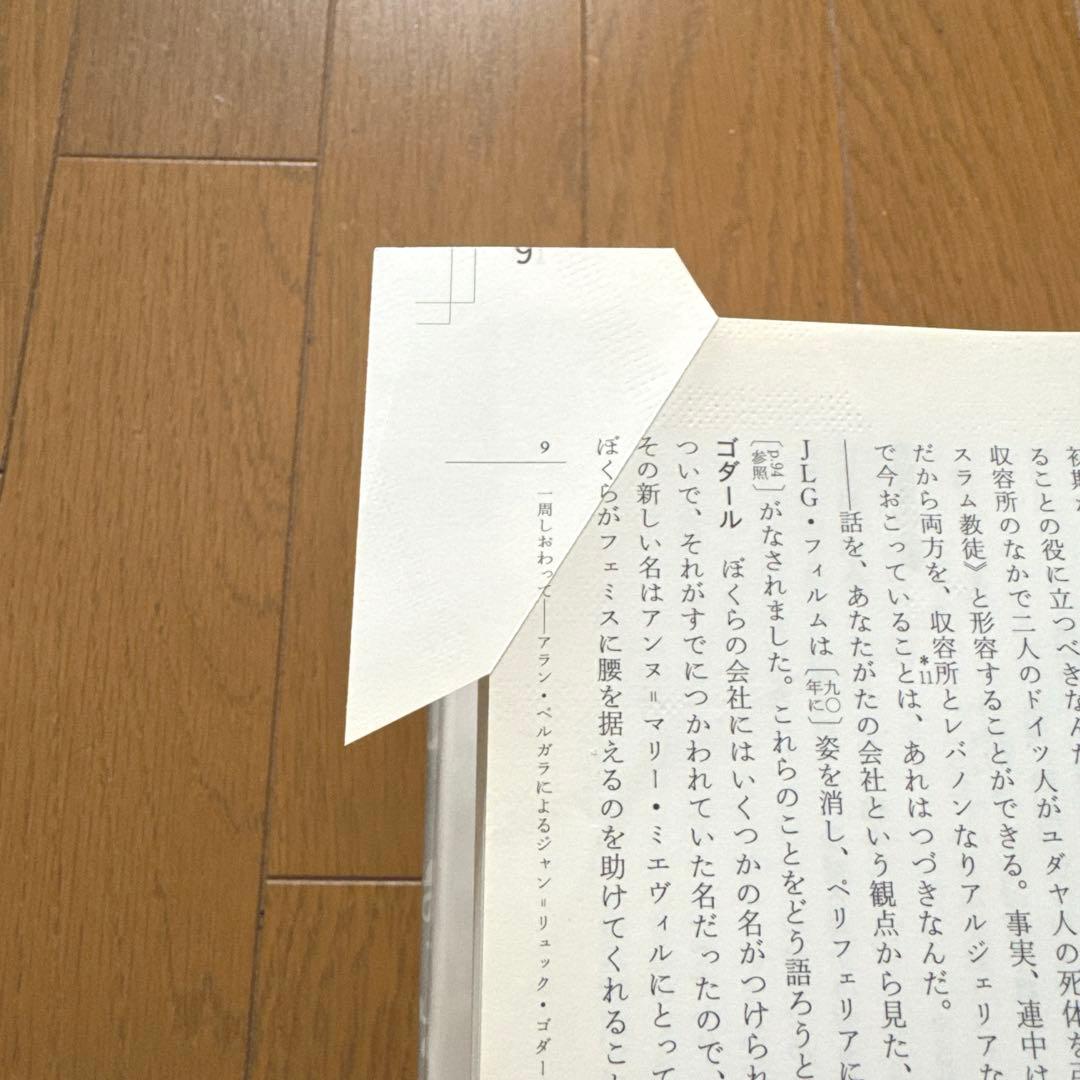 ることの役に立つべきなんだ
収容所のなかで二人のドイツ人がユダヤ人の死体を
スラム教徒》と形容することができる。事実、連中は
だから両方を、収容所とレバノンなりアルジェリアな
*11
で今おこっていることは、あれはつづきなんだ。
――話を、あなたがたの会社という観点から見た、
JLG・フィルムは〔九〇年に〕姿を消し、ペリフェリアに
〔p.94参照〕がなされました。これらのことをどう語ろうと
ゴダール　ぼくらの会社にはいくつかの名がつけられ
ついで、それがすでにつかわれていた名だったので、
その新しい名はアンヌ=マリー・ミエヴィルにとって
ぼくらがフェミスに腰を据えるのを助けてくれること
9
一周しおわって――アラン・ベルガラによるジャン=リュック・ゴダー
9